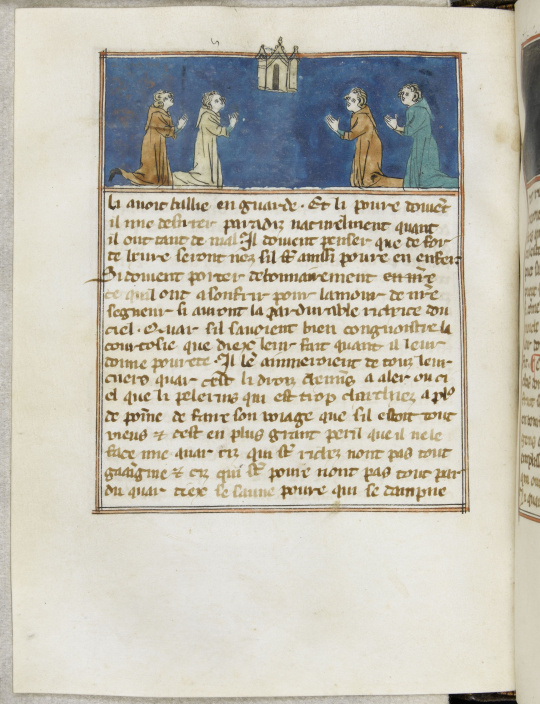 li auoit baillie en guarde · Et li poure doiuent
il me desirrer paradiz naturelment quant
il ont tant de mal Il doiuent penser que de for
de leure seront nez sil st ainssi poure en enfer
Si doiuent porter debonnairement
ce quil ont a souffrir pour lamour de nre
segneur si auront la pardurable richece dou
ciel · Quar sil sauoient bien congnoistre la
courtoisie que diex leur fait quant il leur
donne pourete · Il le ameroient de touz leur
cuers quar cest li droiz chemins a aler ou ci
el que li pelerins qui est trop chargiez a plus
de poine de faire son uoiage que sil estoit tout
uiens & cest en plus grant peril que il ne le
face mie quar cil qui st richez nont pas tout
gaaignie & cil qui st poure nont pas tout per
du quar diex se sauue poure qui se dampne